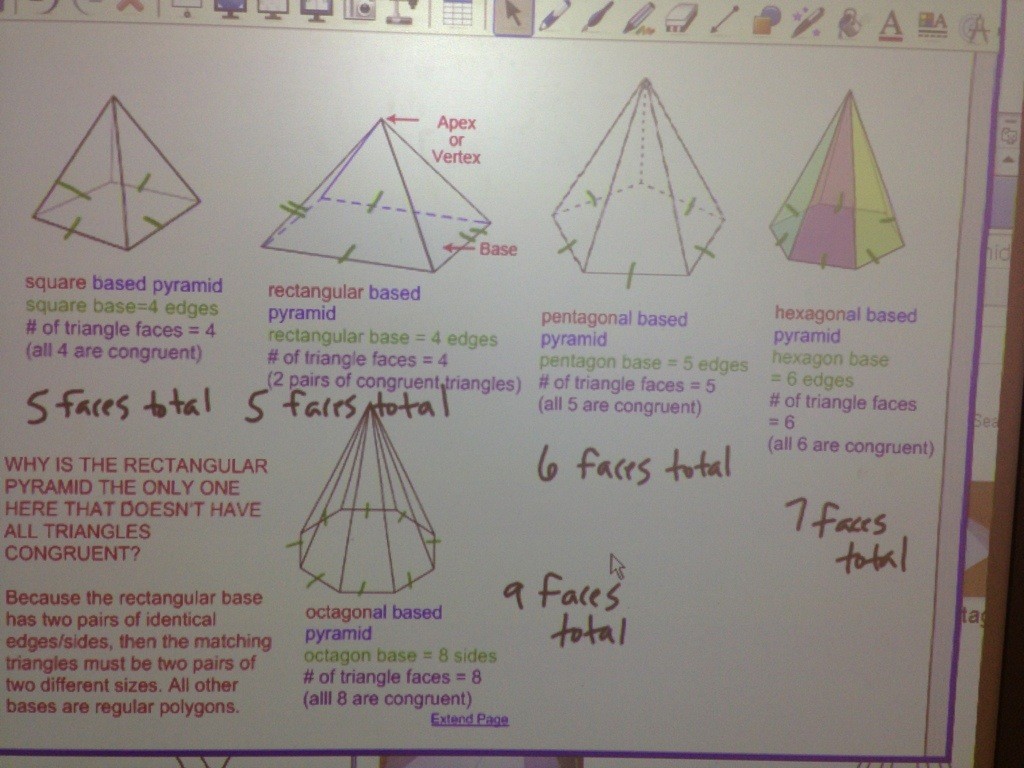 Apex
or
Vertex
Base
square based pyramid
square base=4 edges
# of triangle faces = 4
(all 4 are congruent)
5 faces total
rectangular based
pyramid
rectangular base = 4 edges
# of triangle faces = 4
(2 pairs of congruent triangles)
5 faces total
pentagonal based
pyramid
pentagon base = 5 edges
# of triangle faces = 5
(all 5 are congruent)
6 faces total
hexagonal based
pyramid
hexagon base
= 6 edges
# of triangle faces
= 6
(all 6 are congruent)
7 faces
total
WHY IS THE RECTANGULAR
PYRAMID THE ONLY ONE
HERE THAT DOESN'T HAVE
ALL TRIANGLES
CONGRUENT?
Because the rectangular base
has two pairs of identical
edges/sides, then the matching
triangles must be two pairs of
two different sizes. All other
bases are regular polygons.
octagonal based
pyramid
octagon base = 8 sides
# of triangle faces = 8
(alll 8 are congruent)
9 faces
total
Extend Page